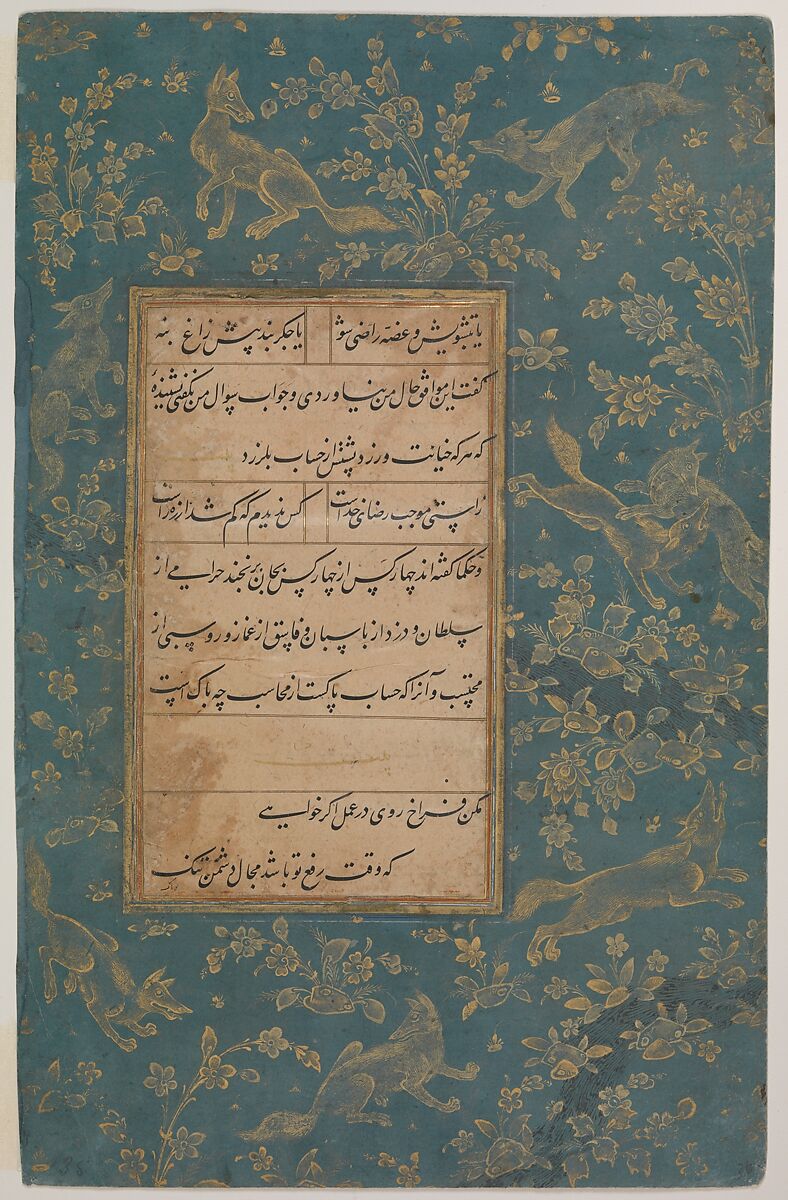 یا بتشویش و غصه راضی شو یا جکر بند پیش زاغ بنه
گفت این موافق حال من نیاوردی و جواب سوال من نگفتی نشنیدهٔ
که هرکه خیانت ورزد پشتش از حساب بلرزد
راستی موجب رضای خداست کس ندیدم که کم شد از ره راست
و حکما گفته اند چهار کس از چهار کس بجان برنجند حرامی از
سلطان و دزد از پاسبان و فاسق از غماز و روسبی از
محتسب و آنرا که حساب پاکست از محاسب چه باک است
بیت
مکن فراخ روی در عمل اکر خواهی
که وقت رفع تو باشد مجال دشمن تنک